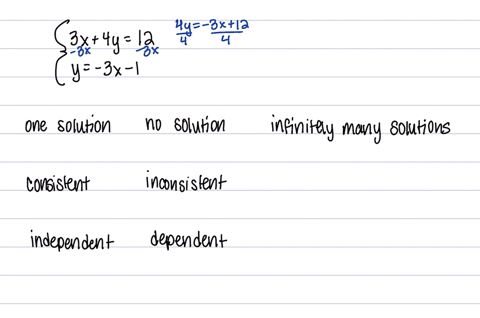 3x + 4y = 12
-3x -3x
4y = -3x+12
4 4
y = -3x - 1
one solution no solution infinitely many solutions
consistent inconsistent
independent dependent